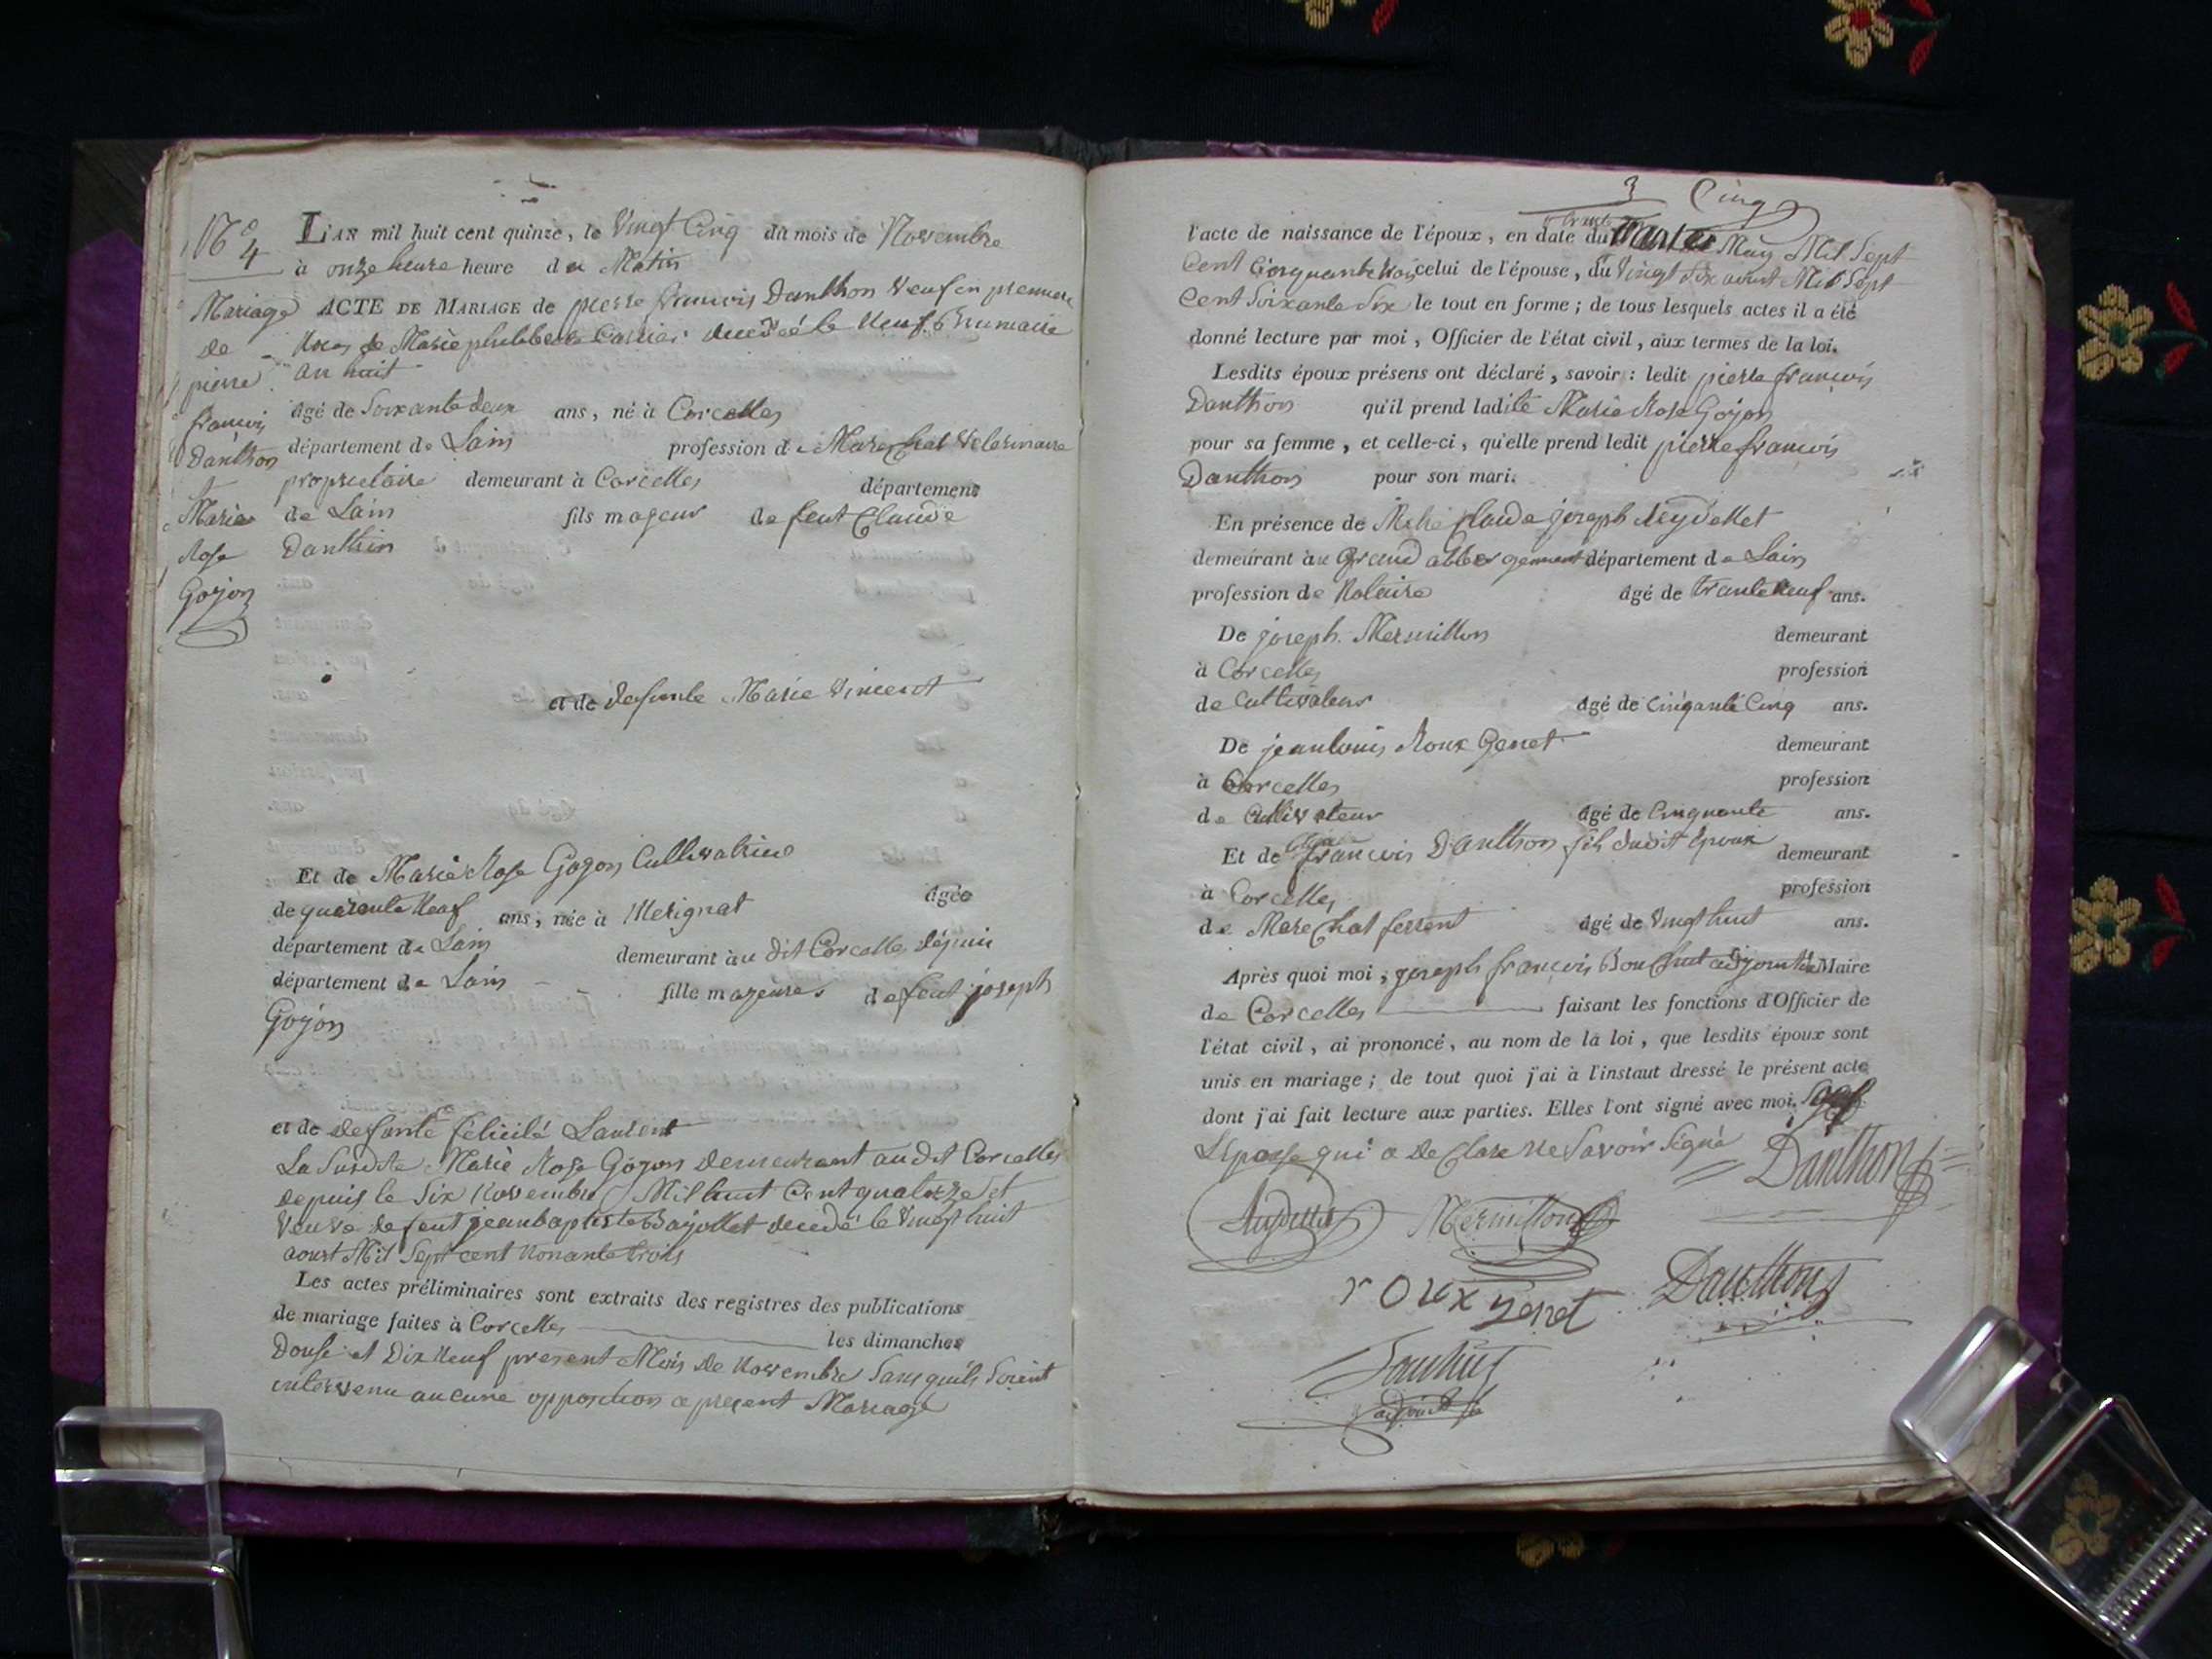 N.º 4
Mariage
de
pierre
francois
Danthon
&
Marie
Rose
Gojon
L'AN mil huit cent quinze, le Vingt Cinq du mois de Novembre
à onze heure heure du Matin
ACTE DE MARIAGE de pierre francois Danthon Veuf en premiere
Noces de Marie philiberte decedé le Neuf Brumaire
an huit
âgé de Soixante deux ans, né à Corcelles
département de Lain profession de Marechal veterinaire
proprietaire demeurant à Corcelles département
de Lain fils majeur de feut Claude
Danthon
et de defunte Marie Vincent
Et de Marie Rose Gojon Cultivatrice
âgée
de quarante Neuf ans, née à Merignat
département de Lain demeurant au dit Corcelles depuis
département de Lain fille majeure de feut joseph
Gojon
et de defunte felicité Laurent
La Susdite Marie Rose Gojon demeurant au dit Corcelles
depuis le Six Novembre Mil huit Cent quatorze et
Veuve de feut jean baptiste Bajollet decedé le Vingt huit
aoust Mil Sept cent Nonante trois
Les actes préliminaires sont extraits des registres des publications
de mariage faites à Corcelles les dimanches
Douse et Dix Neuf present Mois de Novembre Sans quils Soient
intervenu aucune opposition a present Mariage
3 Cinq
l'acte de naissance de l'époux, en date du trente May Mil Sept
Cent Cinquante trois celui de l'épouse, du Vingt Six aoust Mil Sept
Cent Soixante Six le tout en forme; de tous lesquels actes il a été
donné lecture par moi, Officier de l'état civil, aux termes de la loi.
Lesdits époux présens ont déclaré, savoir: ledit pierre francois
Danthon qu'il prend ladite Marie Rose Gojon
pour sa femme, et celle-ci, qu'elle prend ledit pierre francois
Danthon pour son mari.
En présence de Claude joseph
demeurant au Grand abbergement département de Lain
profession de Notaire âgé de trante Neuf ans.
De joseph Mermillon demeurant
à Corcelles profession
de Cultivateur âgé de Cinqante Cinq ans.
De jean louis Roux Genet demeurant
à Corcelles profession
de Cultivateur âgé de Cinquante ans.
Et de francois Danthon fils dudit époux demeurant
à Corcelles profession
de Marechal ferrent âgé de Vingt huit ans.
Après quoi moi, joseph francois Bouchut adjoint du Maire
de Corcelles faisant les fonctions d'Officier de
l'état civil, ai prononcé, au nom de la loi, que lesdits époux sont
unis en mariage; de tout quoi j'ai à l'instaut dressé le présent acte
dont j'ai fait lecture aux parties. Elles l'ont signé avec moi. Sauf
Lépouse qui a declare ne Savoir Signé Danthon
Mermillon
roux genet Danthon
Bouchut
adjoint